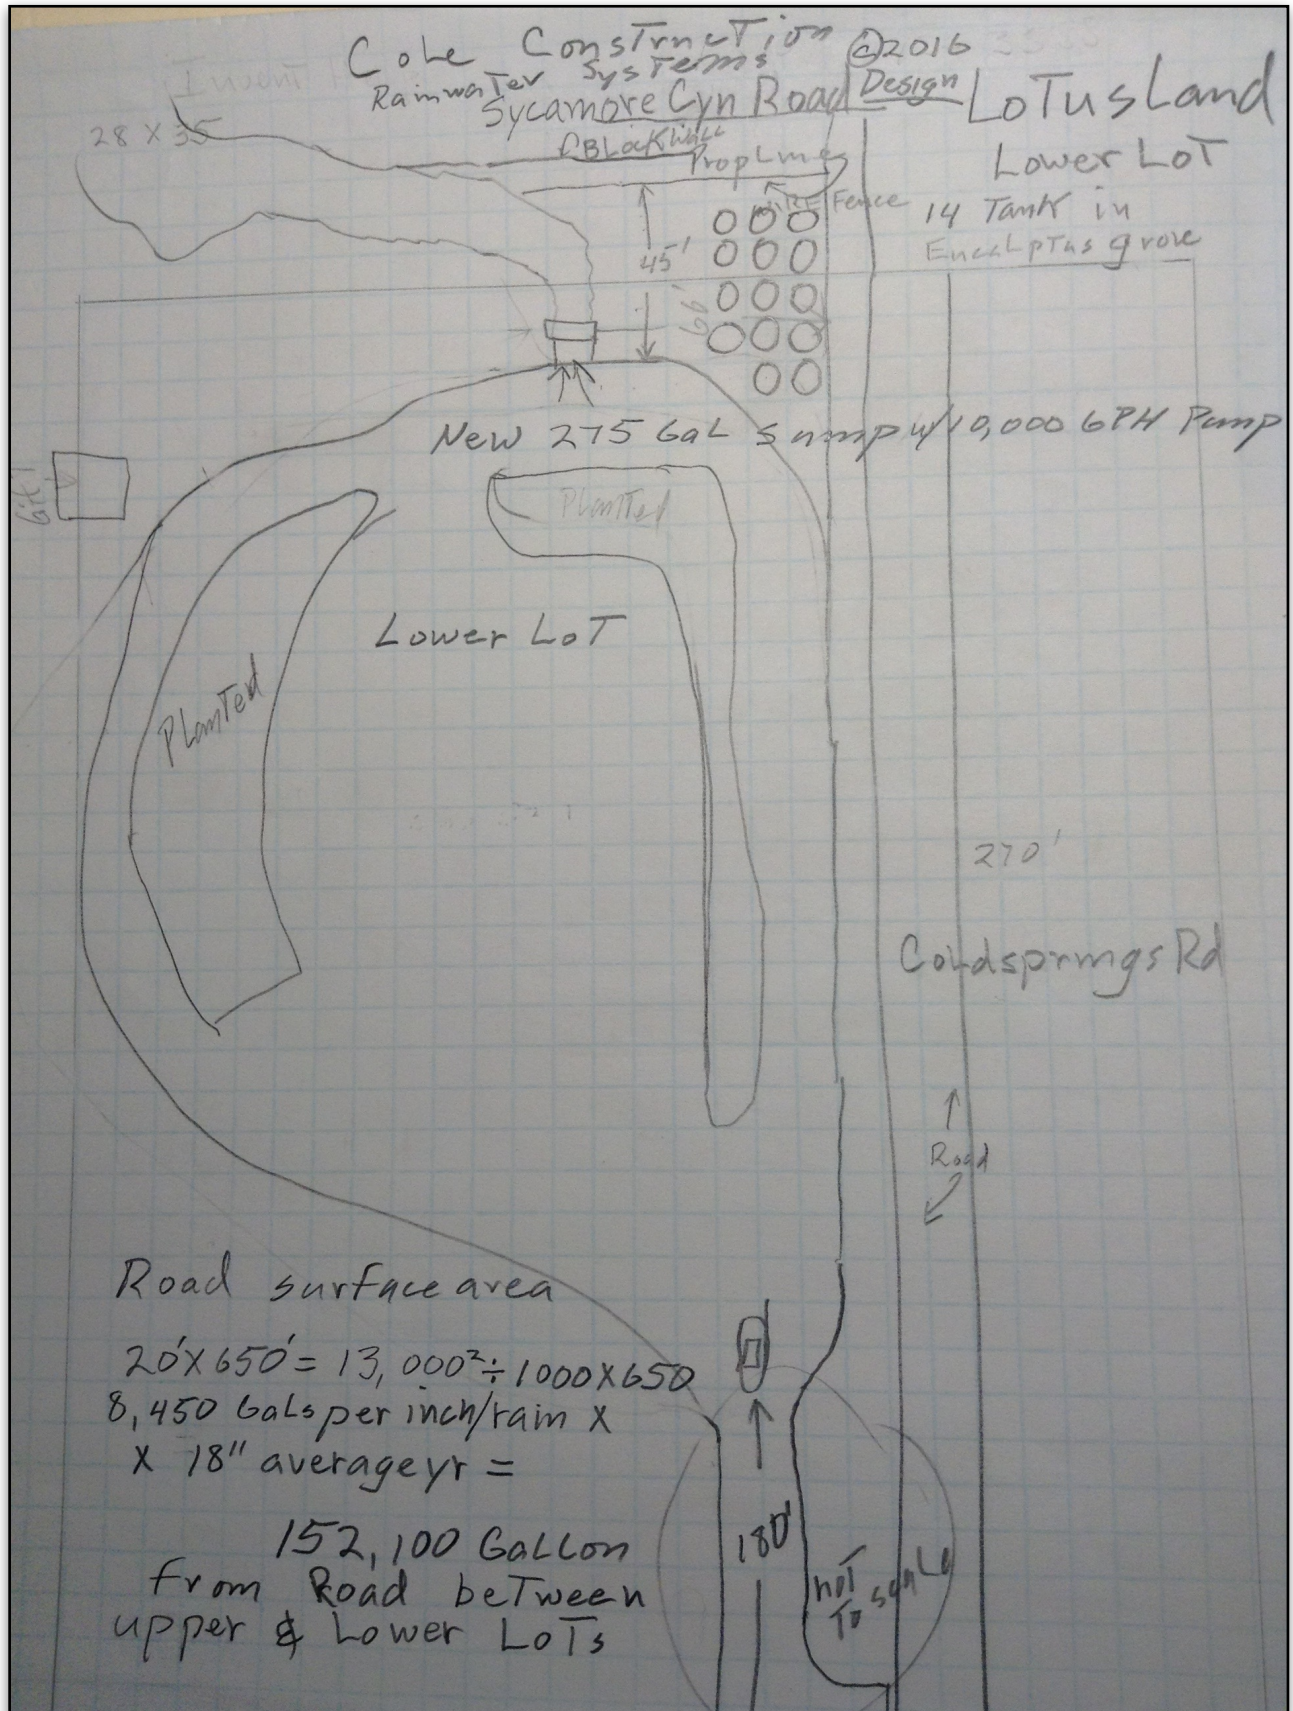 Cole Construction ©2016
Rainwater Systems
Sycamore Cyn Road Design LoTusLand
BLock Wall
Prop Line
Lower LoT
28 X 35
Fence
14 Tank in
EucaLpTus grove
45'
66'
New 275 GaL sump w/10,000 GPH Pump
PlanTed
Lower LoT
PLanTed
270'
Coldsprings Rd
Road
Road surface area
20'X650'= 13,000²÷1000X650
8,450 GaLs per inch/rain X
X 18" average yr =
152,100 GaLLon
from Road beTween
upper & Lower LoTs
180'
noT
To scaLe